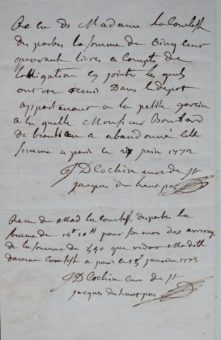 Recu de Madame la Comtesse
des parbes la somme de Cinq Cent
quarant livres a Compte de
lobligation cy jointe les quels
ont ete remis dans le depot
appartenant a la petite
a la quelle Monsieur
de a abandonné Cette
somme a paris le 27 juin 1772
J D Cochin curé de St
jacques du haut pas
Recu de Mad la Comtess desparbes la
somme de pour six mois des
de la somme de 540 que
a paris le 15 janvier 1773
J D Cochin Curé de St
jacques du haut pas